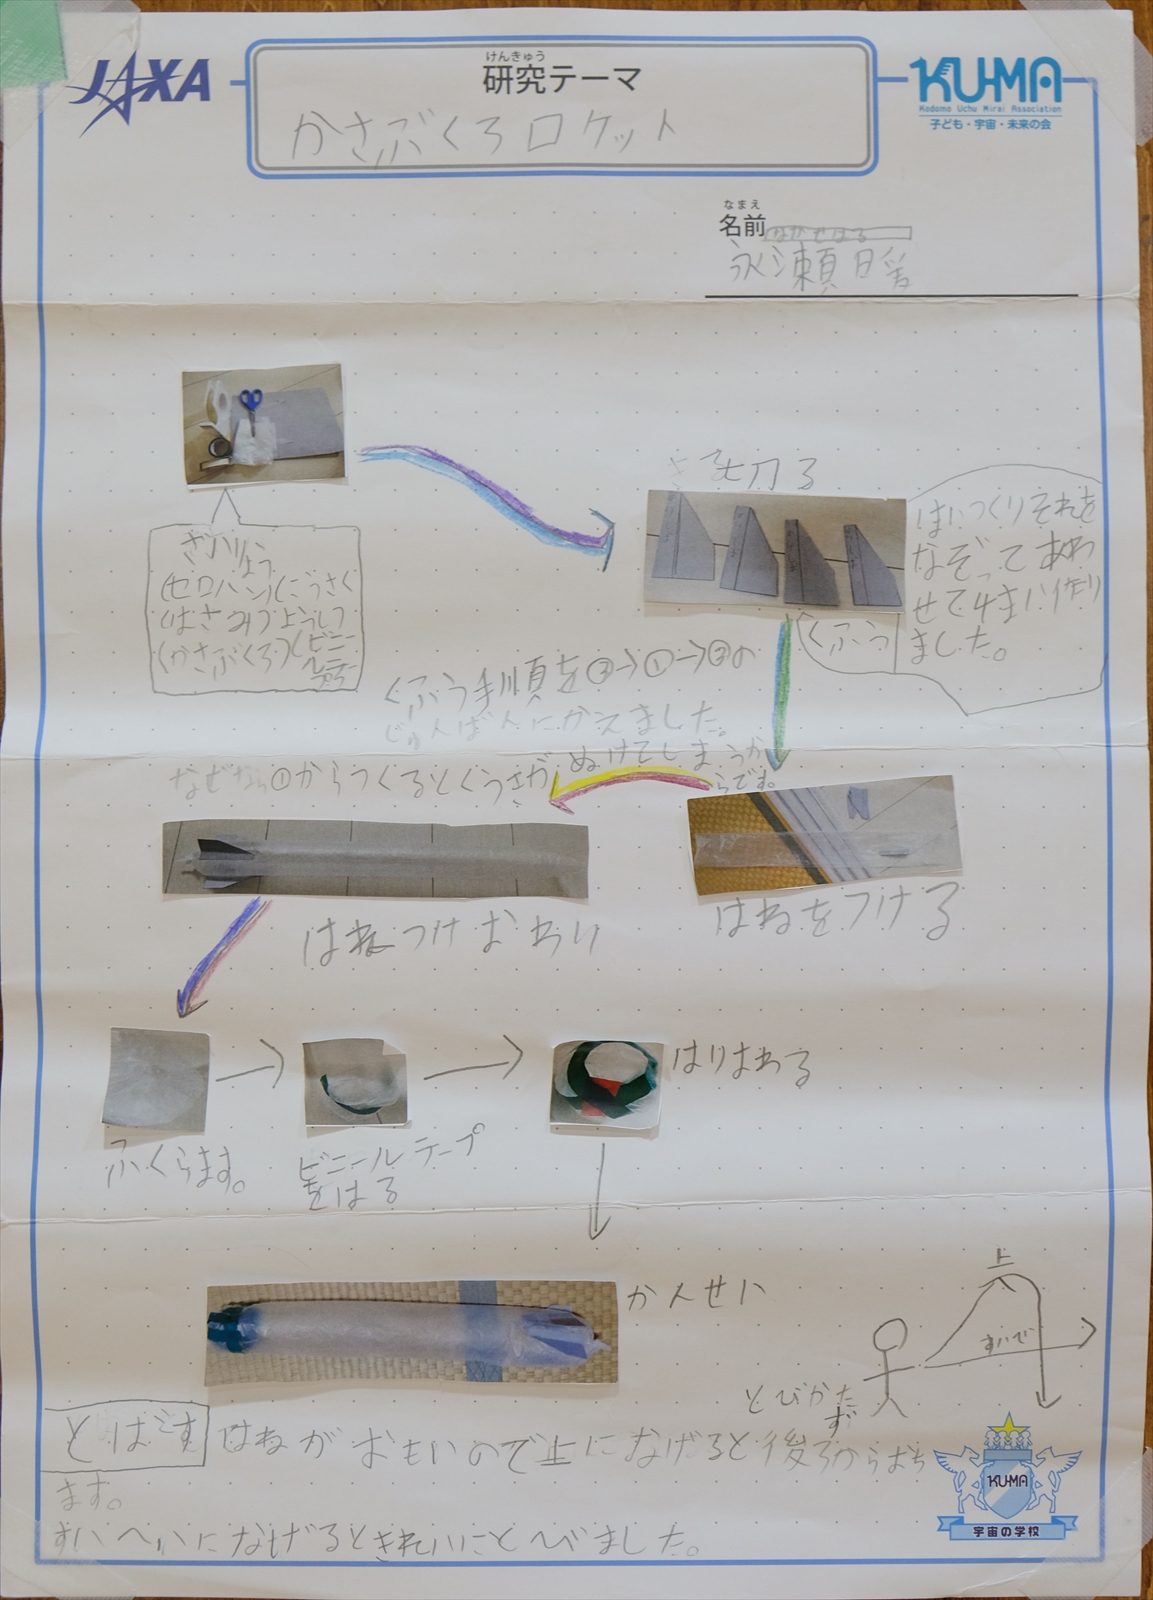 JAXA
けんきゅう
研究テーマ
かさぶくろロケット
KU-MA
Kodomo Uchu Mirai Association
子ども・宇宙・未来の会
なまえ
名前
ながせはる
永瀬日
きる
切る
ざいりょう
(セロハン)(こうさく
(はさみ)ようし)
(かさぶくろ)(ビニー
ルテー
プ)
はいつくりそれを
なぞってあわ
せて4まい作り
ました。
くふう
くふう手順を③→①→②の
じゅんばんにかえました。
なぜなら①からつくるとくうきがぬけてしまうか
らです。
はねつけおわり
はねをつける
はりおわる
ふくらます。
ビニールテープ
をはる
かんせい
上
すいへい
とびかた
ず
とばす はねがおもいので上になげると後ろからおち
ます。
すいへいになげるときれいにとびました。
KU-MA
宇宙の学校